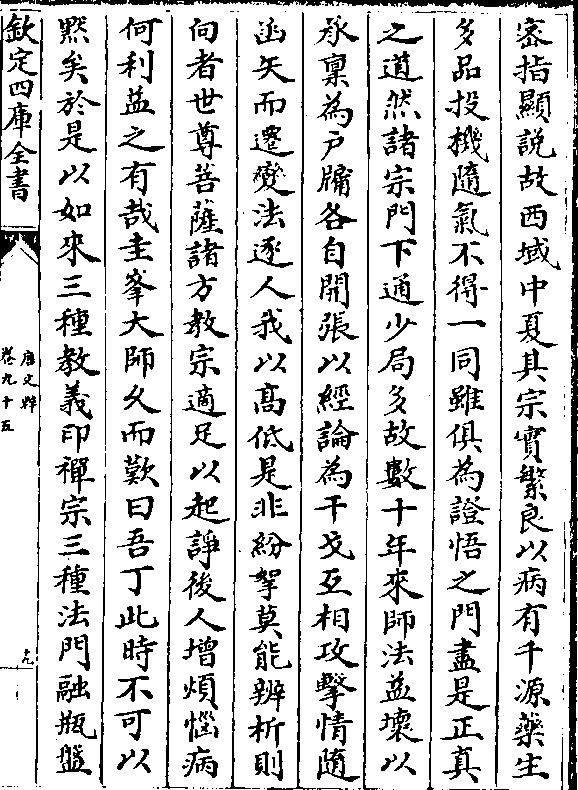 密指顯說故西域中夏其宗實繁良以病有千源藥生
多品投機隨氣不得一同雖俱為證悟之門盡是正真
之道然諸宗門下通少局多故數十年來師法益壞以
承稟為戶牖各自開張以經論為干戈互相攻擊情隨
函矢而遷變法逐人我以高低是非紛拏莫能辨析則
向者世尊菩薩諸方教宗適足以起諍後人增煩惱病
何利益之有哉圭峯大師久而歎曰吾丁此時不可以
黙矣於是以如來三種教義印禪宗三種法門融瓶盤
欽定四庫全書
唐文粹
卷九十五
十九